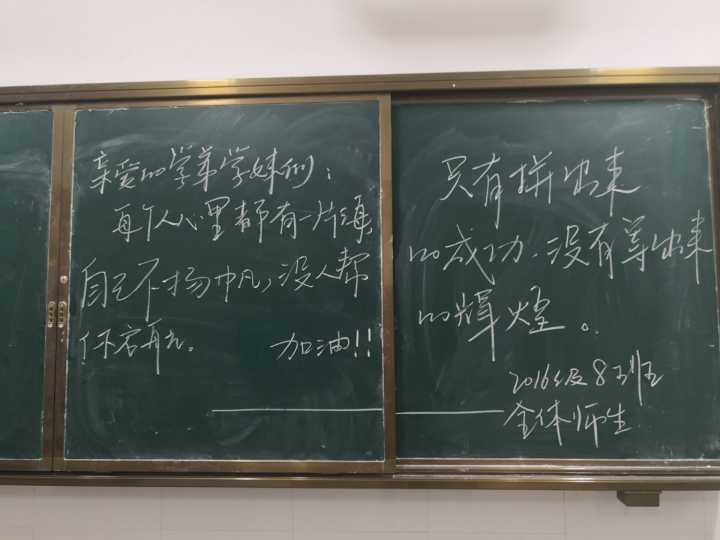 亲爱的学弟学妹们：
每个人心里都有一片海，
自己不扬帆，没人帮
你启航。 加油!!
只有拼出来
的成功，没有等出来
的辉煌。
2016级8班
全体师生